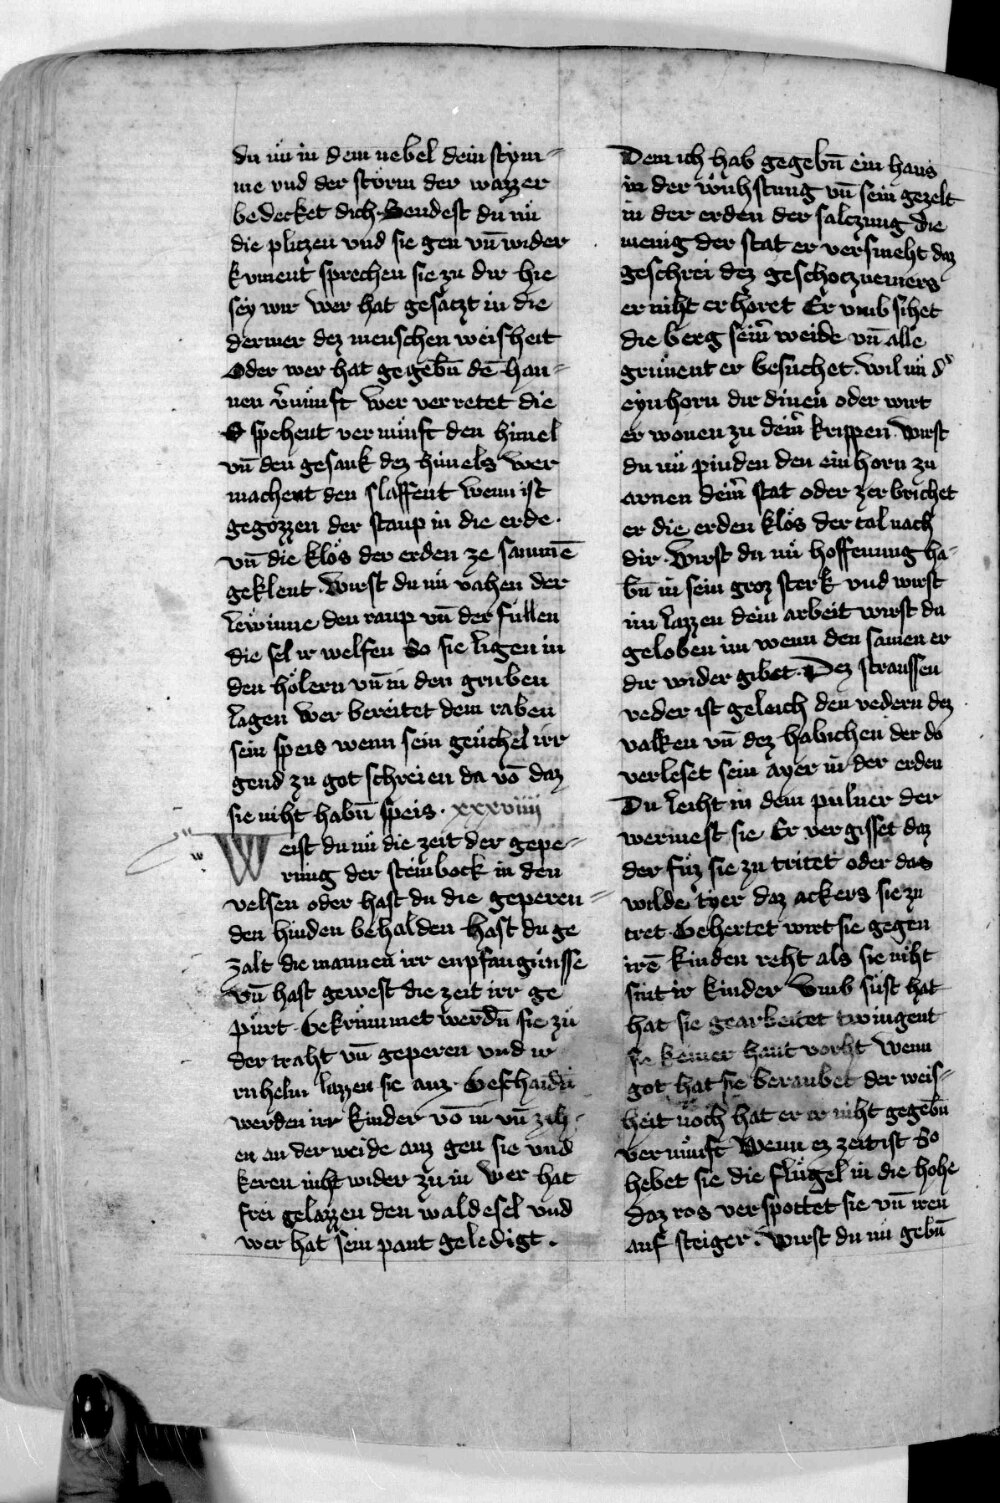 du nu in dem nebel dein stym-
me vnd der störm der wazzer
bedecket dich. Sendest du nu
die pliczen vnd sie gen vn̄ wider
kument sprechen sie zu dir hie
sey wir Wer hat gesaczt in die
dermer dez menschen weisheit
Oder wer hat gegebn̄ dē han-
nen v̄nünft Wer verretet die
spehent vernünft den himel
vn̄ den gesank dez himels Wer
machent den slaffent Wenn ist
gegozzen der staup in die erde.
vn̄ die klös der erden ze sammē
geklent. Wirst du nü vahen der
Lewinne den raup vn̄ der füllen
die sel ir welfen So sie ligen in
den hölern vn̄ in den gruben
lagen Wer bereitet dem raben
sein speis wenn sein geüchel irr
gend zu got schreien da vō daz
sie niht habn̄ speis. xxxviiii
w
Weist du nü die zeit der gepe-
rung der steinbock in den
velsen oder hast du die geperen-
den hinden behalden hast du ge
zalt die mannen irr enpfangnüsse
vn̄ hast gewest die zeit irr ge
pürt. Gekrümmet werdn̄ sie zü
der traht vn̄ geperen vnd ir
ruheln lazzen sie auz. Gescheiden
werden irr kinder vō in vn̄ zih
en an der weide auz gen sie vnd
keren niht wider zu in Wer hat
frei gelazzen den waldesel vnd
wer hat sein pant geledigt.
Dem ich hab gegebn̄ ein haus
in der wuhstung vn̄ sein gezelt
in der erden der salczung die
menig der stat er versmeht daz
geschrei dez geschocznemers
er niht erhöret Er vmb sihet
die berg seinr̄ weide vn̄ alle
grünent er besuchet. Wil nü dʳ
eynhorn dir dinen oder wirt
er wonen zu deinr̄ krippen. Wirst
du nü pinden den einhorn zu
arnen dein̄ stat oder zerbrichet
er die erden klös der tal nach
dir. Wirst du nü hoffenung ha-
bn̄ in sein groz sterk vnd wirst
im lazzen dein arbeit wirst du
geloben im wenn den samen er
dir wider gibet. Dez straussen
veder ist geleich den vedern dez
valken vn̄ dez habichen der do
verleset sein ayer in der erden
Du leiht in dem puluer der
wermest sie Er vergisset daz
der fuz sie zu tritet oder das
wilde tyer daz ackers sie zu
tret. Gehertet wirt sie gegen
irē kinden reht als sie niht
sint ir kinder Vmb süst hat
hat sie gearbeitet twingent
sie keiner haut vorht Wenn
got hat sie beraubet der weis-
heit noch hat er ir niht gegebn̄
vernünft Wenn ez zeit ist So
hebet sie die flügel in die hohe
daz ros verspottet sie vn̄ iren
auf steiger. Wirst du nu gebn̄